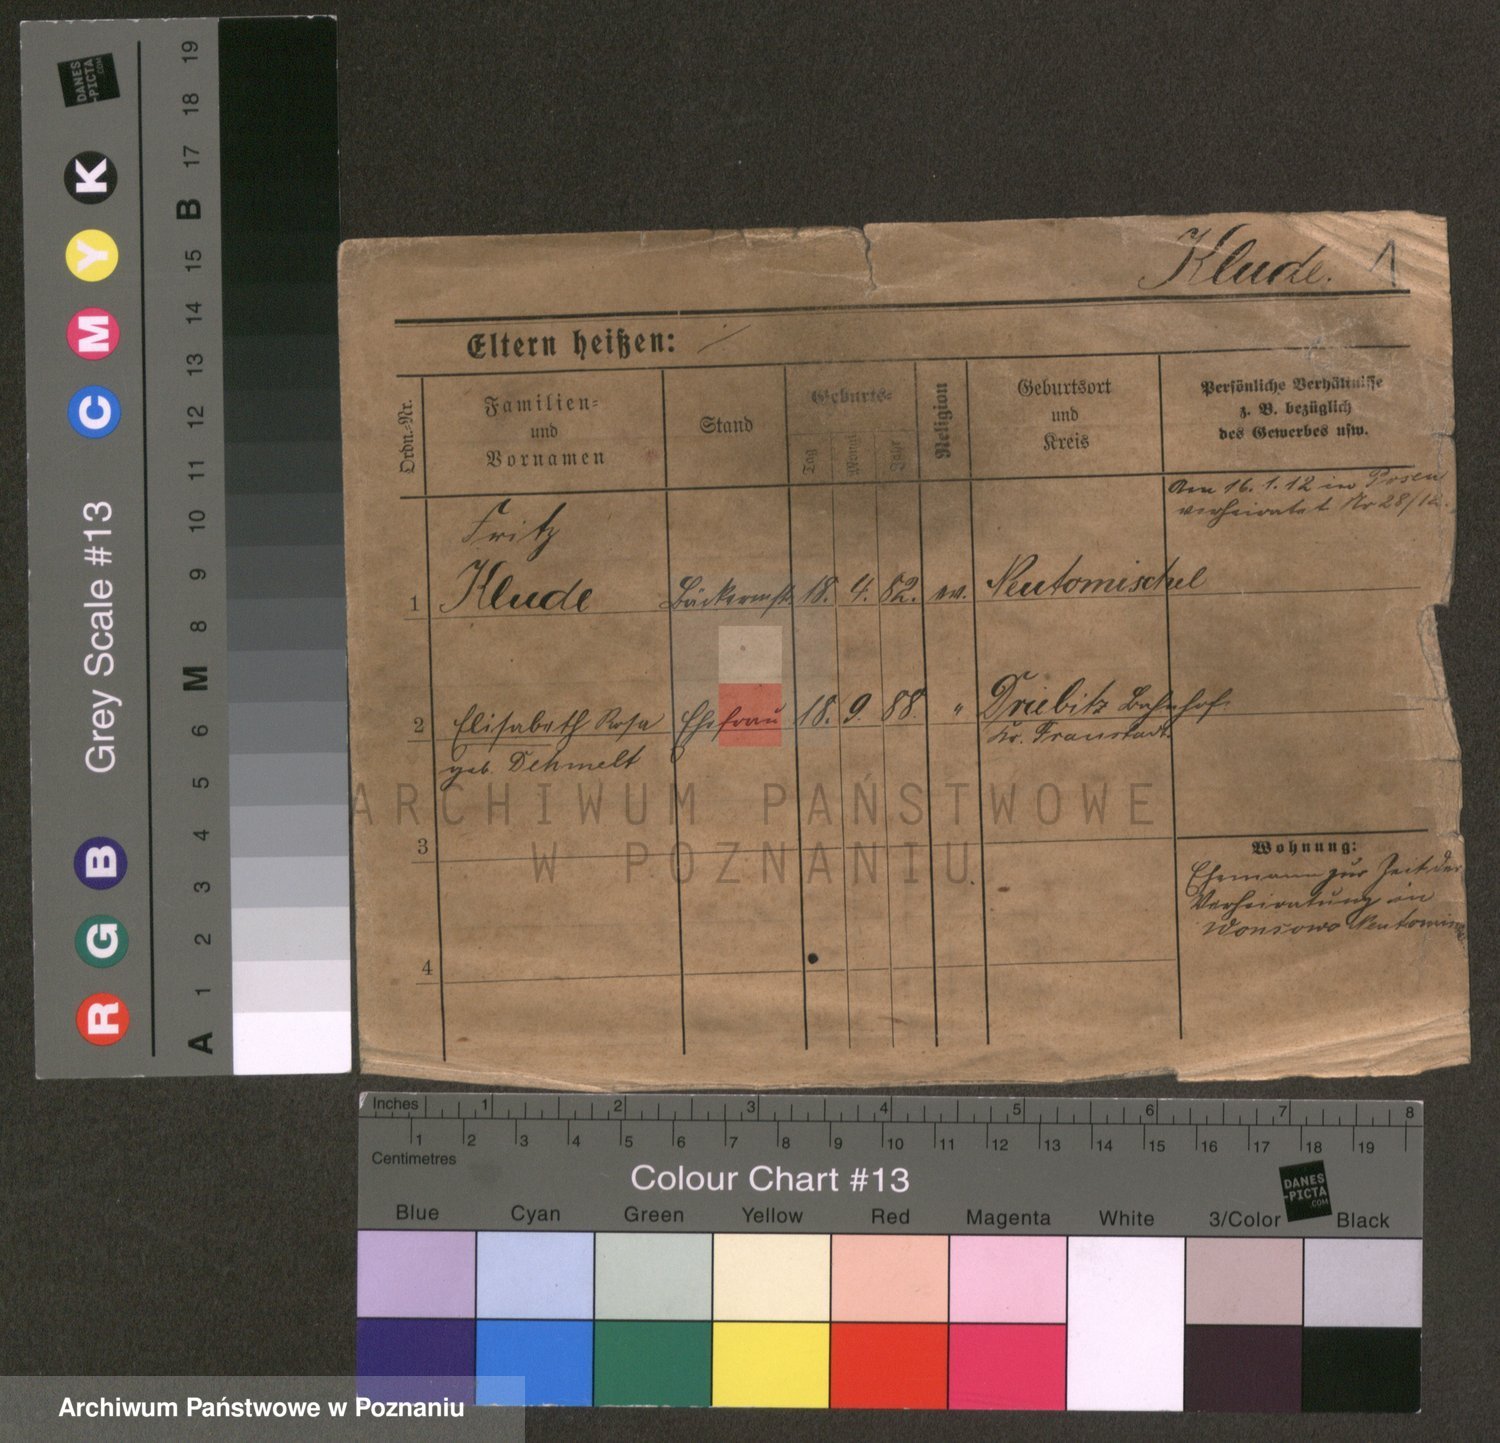 Klude. 1
Eltern heißen: /
Ordn.-Nr.
Familien-
und
Vornamen
Stand
Geburts-
Tag
Monat
Jahr
Religion
Geburtsort
und
Kreis
Persönliche Verhältnisse
z. B. bezüglich
des Gewerbes usw.
Am 16.1.12 in Posen
verheiratet Nr 28/12.
Fritz
1 Klude Bäckermstr. 18. 4. 82. ev. Neutomischel
2 Elisabeth Rosa Ehefrau 18. 9. 88. " Driebitz Bahnhof
geb. Dehmelt Kr. Fraustadt
3
4
Wohnung:
Ehemann zur Zeit der
Verheiratung in
Wonsowo
ARCHIWUM PAŃSTWOWE
W POZNANIU
Archiwum Państwowe w Poznaniu
DANES
-PICTA
.COM
Grey Scale #13
R G B C M Y K
A 1 2 3 4 5 6 M 8 9 10 11 12 13 14 15 B 17 18 19
Inches 1 2 3 4 5 6 7 8
1 2 3 4 5 6 7 8 9 10 11 12 13 14 15 16 17 18 19
Centimetres
Colour Chart #13
DANES
-PICTA
.COM
Blue Cyan Green Yellow Red Magenta White 3/Color Black